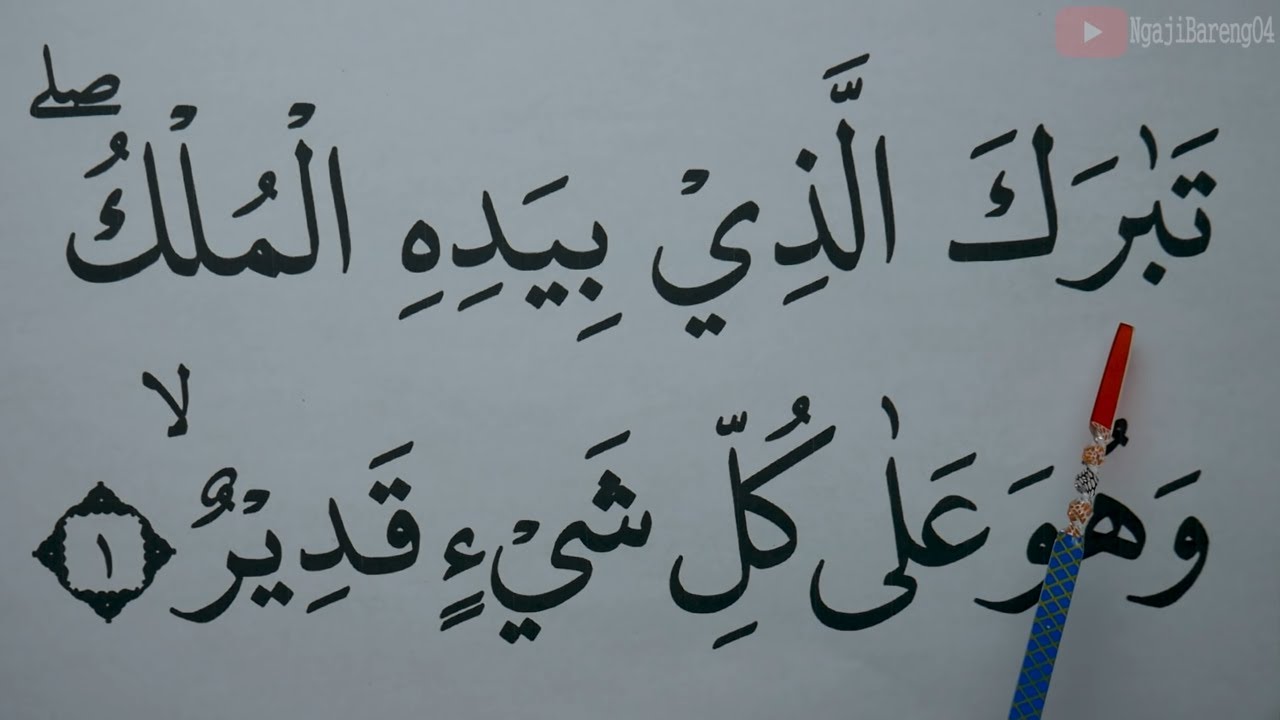 NgajiBareng04
تَبٰرَكَ الَّذِيْ بِيَدِهِ الْمُلْكُ ۖ
وَهُوَ عَلٰى كُلِّ شَيْءٍ قَدِيْرٌ ۙ ١